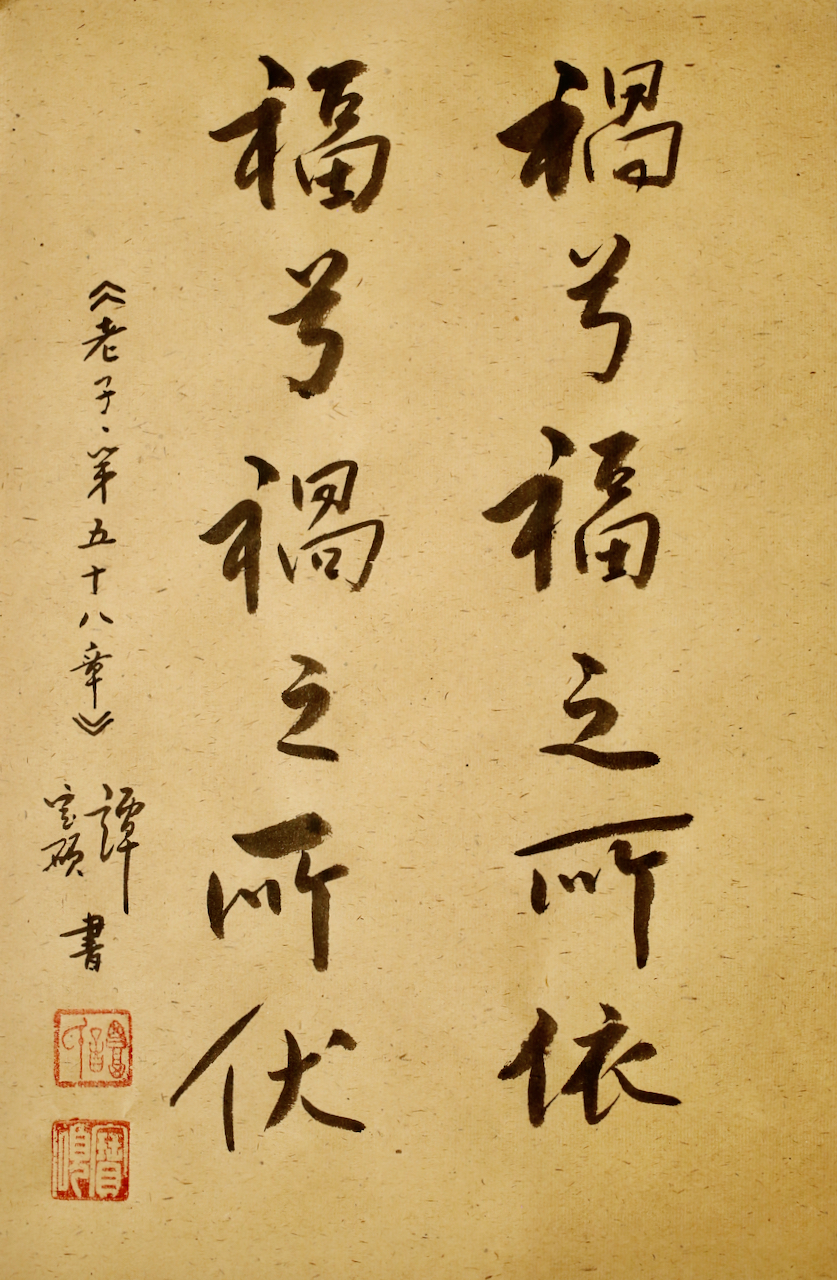 禍兮福之所依
福兮禍之所伏
《老子、第五十八章》
譚宝硕書
譚印
寶碩